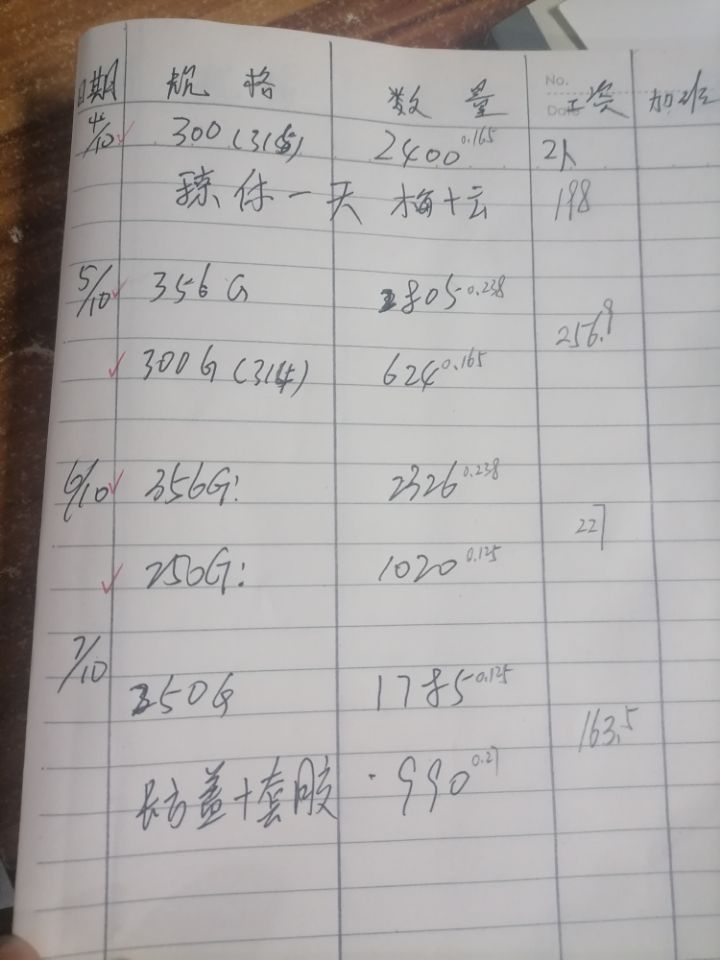 日期 规格 数量 No. Date 工资 加班
4/10 300(314) 2400 0.165 2人
休一天 梅+云 198
5/10 356G 2805 0.238
256.9
300G(314) 624 0.165
6/10 356G: 2326 0.238
227
250G: 1020 0.125
7/10
250G 1785 0.125
163.5
长方盖+套胶 · 990 0.27